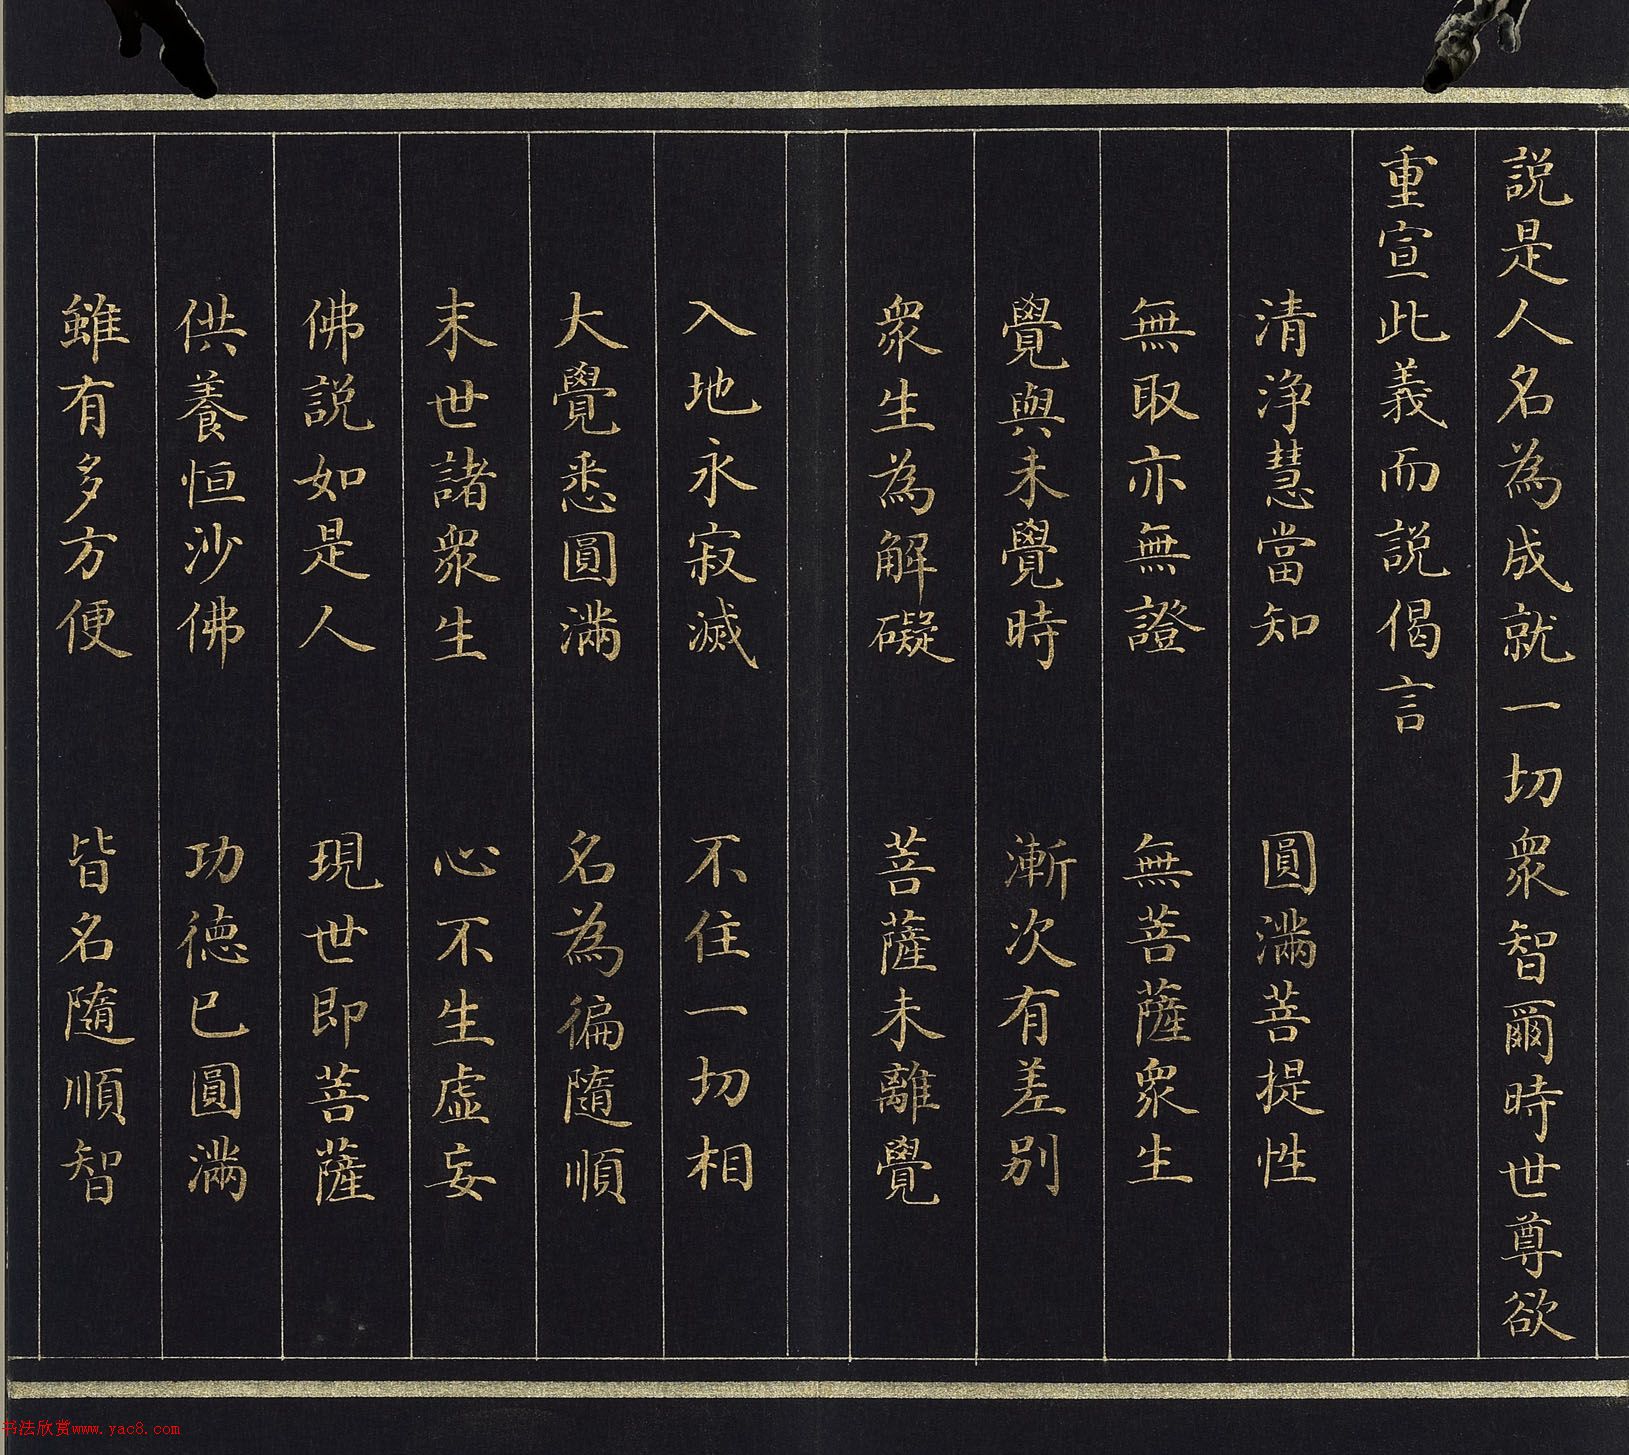 説是人名為成就一切衆智爾時世尊欲
重宣此義而説偈言
清浄慧當知 圓滿菩提性
無取亦無證 無菩薩衆生
覺與未覺時 漸次有差別
衆生為解礙 菩薩未離覺
入地永寂滅 不住一切相
大覺悉圓滿 名為徧隨順
末世諸衆生 心不生虛妄
佛説如是人 現世即菩薩
供養恒沙佛 功德已圓滿
雖有多方便 皆名隨順智
书法欣赏www.yac8.com